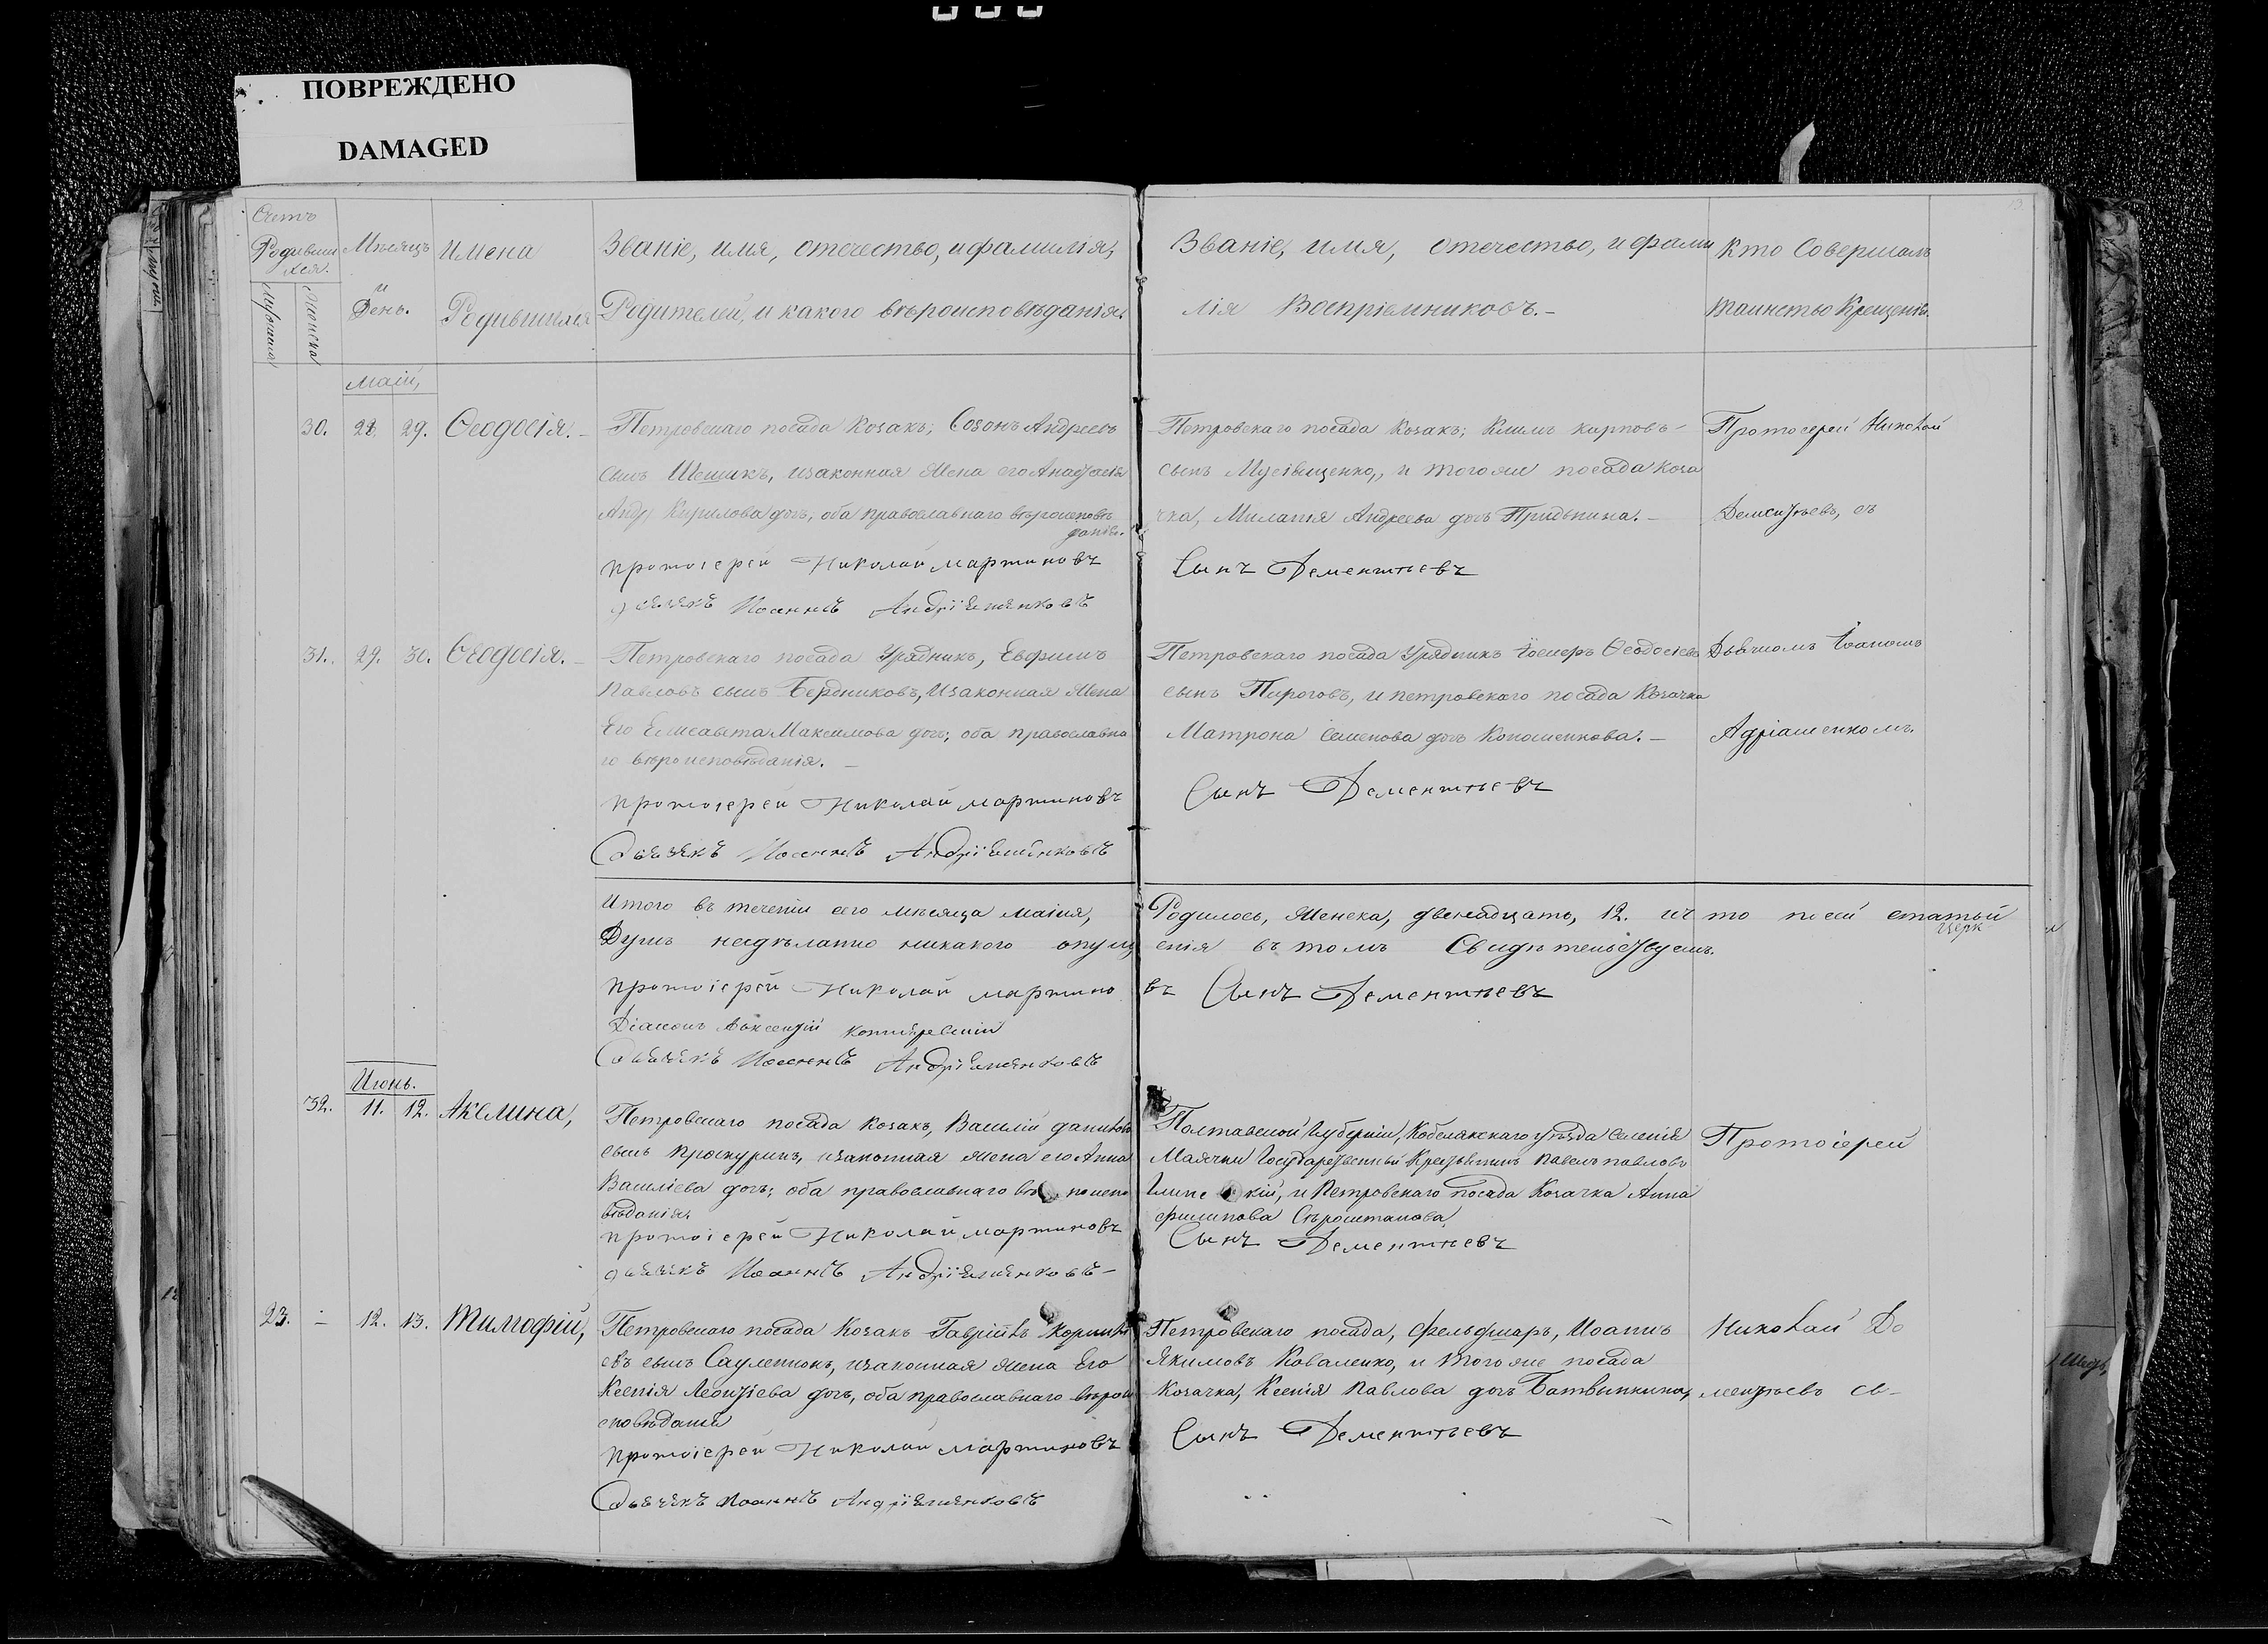 ПОВРЕЖДЕНО
DAMAGED
Счетъ
Родивших
ся.
Мужеска
Женска
Мѣсяцъ
и
День.
Имена
Родившихся
Званіе, имя, отечество, и фамилія,
Родителей, и какого вѣроисповѣданія.
Званіе, имя, отечество, и фами
лія Воспріемниковъ.-
Кто Совершалъ
таинство Крещенія.
маій,
30. 28. 29. Ѳеодосія.-
Петровскаго посада Козакъ, Созонъ Андреевъ
сынъ Шешикъ, изаконная жена его
Кирилова дочь, оба православнаго вѣроисповѣ
данія.
протоіерей Николай мартиновъ
дьячекъ Иоаннъ Андріяшенковъ
Петровскаго посада Козакъ; Климъ карповъ-
сынъ и тогоже посада коза
чка, Миланія Андреева дочь
Сынъ Дементьевъ
Протоіерей Николай
Дементьевъ, съ
31. 29. 30. Ѳеодосія.-
Петровскаго посада Урядникъ, Евфимъ
Павловъ сынъ Бердниковъ, Изаконная жена
Его Елисавета Максимова дочь; оба православна
го вѣроисповѣданія.-
протоіерей Николай мартиновъ
дьячекъ Иоаннъ Андріяшенковъ
Петровскаго посада Урядникъ Ѳеодосіевъ
сынъ Пироговъ, и петровскаго посада Козачка
Матрона Семенова дочь Кономенкова.-
Сынъ Дементьевъ
Дьячкомъ Іоаномъ
Адріашенкомъ.
Итого въ теченіи сего мѣсяца маіия,
Родилось, женска, двенадцать, 12. и что по сей статьи
Душъ несдѣлано никакого опущ
енія въ томъ Свидѣтельствуемъ.
церк
протоіерей Николай мартино
въ Сынъ Дементьевъ
Діаконъ Авксентій
дьячекъ Иоаннъ Андріяшенковъ
Июнь.
32. 11. 12. Акелина,
Петровскаго посада Козакъ, Василій даниловъ
сынъ Проскуринъ, изаконная жена его Анна
Василіева дочь; оба православнаго вѣ поиспо
вѣданія.
протоіерей Николай мартиновъ
дьячекъ Иоаннъ Андріяшенковъ-
Полтавской Губерніи, Кобелякскаго уѣзда Селенія
Маячки Государственный Крестьянинъ Павелъ павловъ
кій, и Петровскаго посада Козачка Анна
филипова Сѣроштанова
Сынъ Дементьевъ
Протоіерей
23. - 12. 13. Тимофій,
Петровскаго посада Козакъ Гавріилъ Корнилі
евъ сынъ изаконная жена Его
Ксенія Леонтіева дочь, оба православнаго вѣрои
сповѣданія
протоіерей Николай мартиновъ
дьячекъ Иоаннъ Андріяшенковъ
Петровскаго посада, Фельдшаръ, Иоаннъ
Якимовъ Коваленко, и тогоже посада
Козачка, Ксенія Павлова дочь Ботвинкина,
Сынъ Дементьевъ
Николай Де
ментьевъ съ-